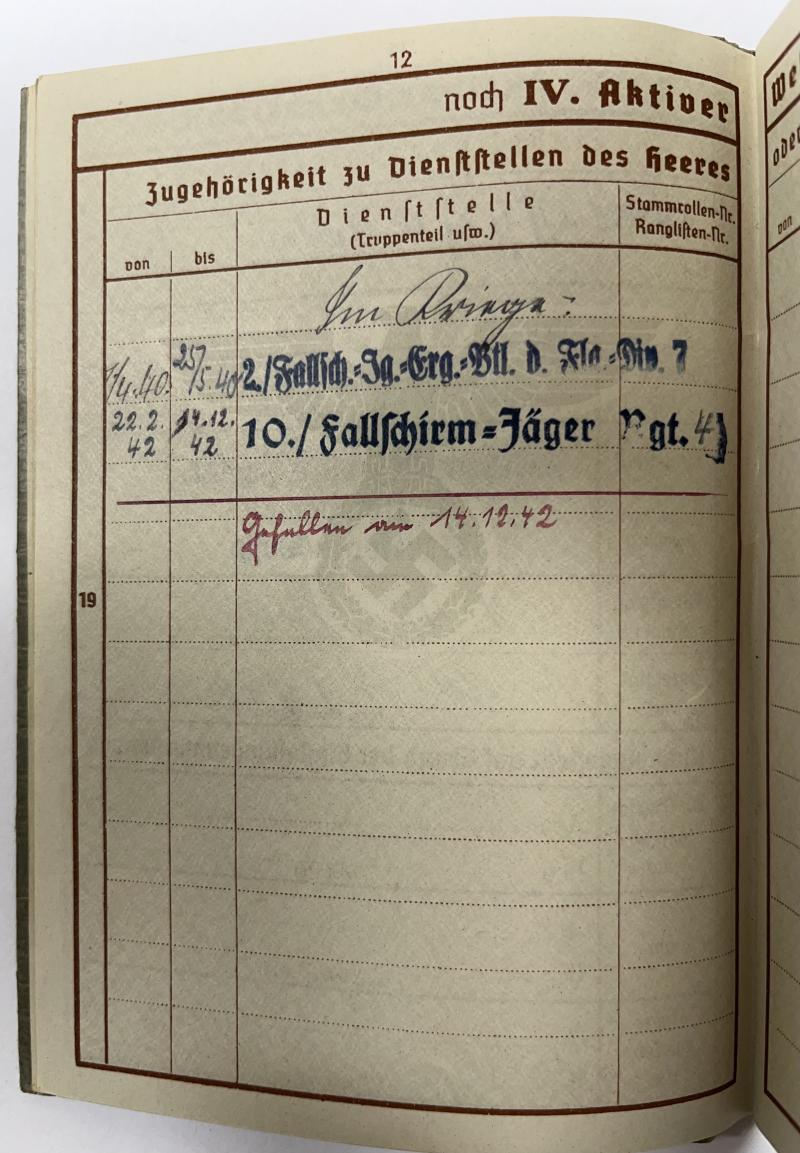 12
noch IV. Aktiver
Zugehörigkeit zu Dienststellen des Heeres
von
bis
Dienststelle
(Truppenteil usw.)
Stammrollen-Nr.
Ranglisten-Nr.
Im Kriege:
1/4.40. 25/5.40 2./Fallsch.=Jg.=Erg.=Btl. d. Flg.=Div. 7
22.2.42 14.12.42 10./Fallschirm=Jäger Rgt. 4
Gefallen am 14.12.42
19
We
oder
von